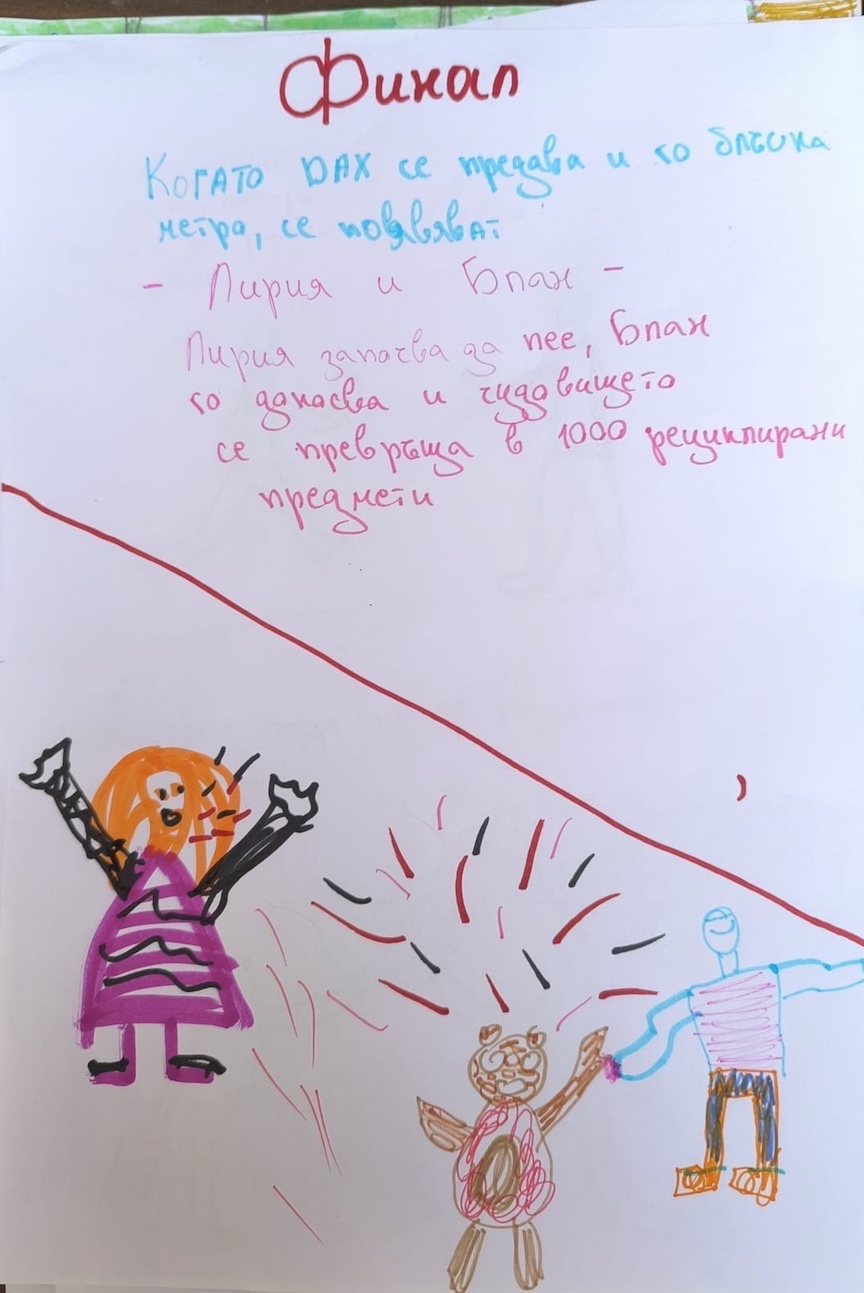 Финал
Когато DAX се предава и го блъска
метро, се появяват
- Лирия и Блан -
Лирия започва да пее, Блан
го докосва и чудовището
се превръща в 1000 рециклирани
предмети